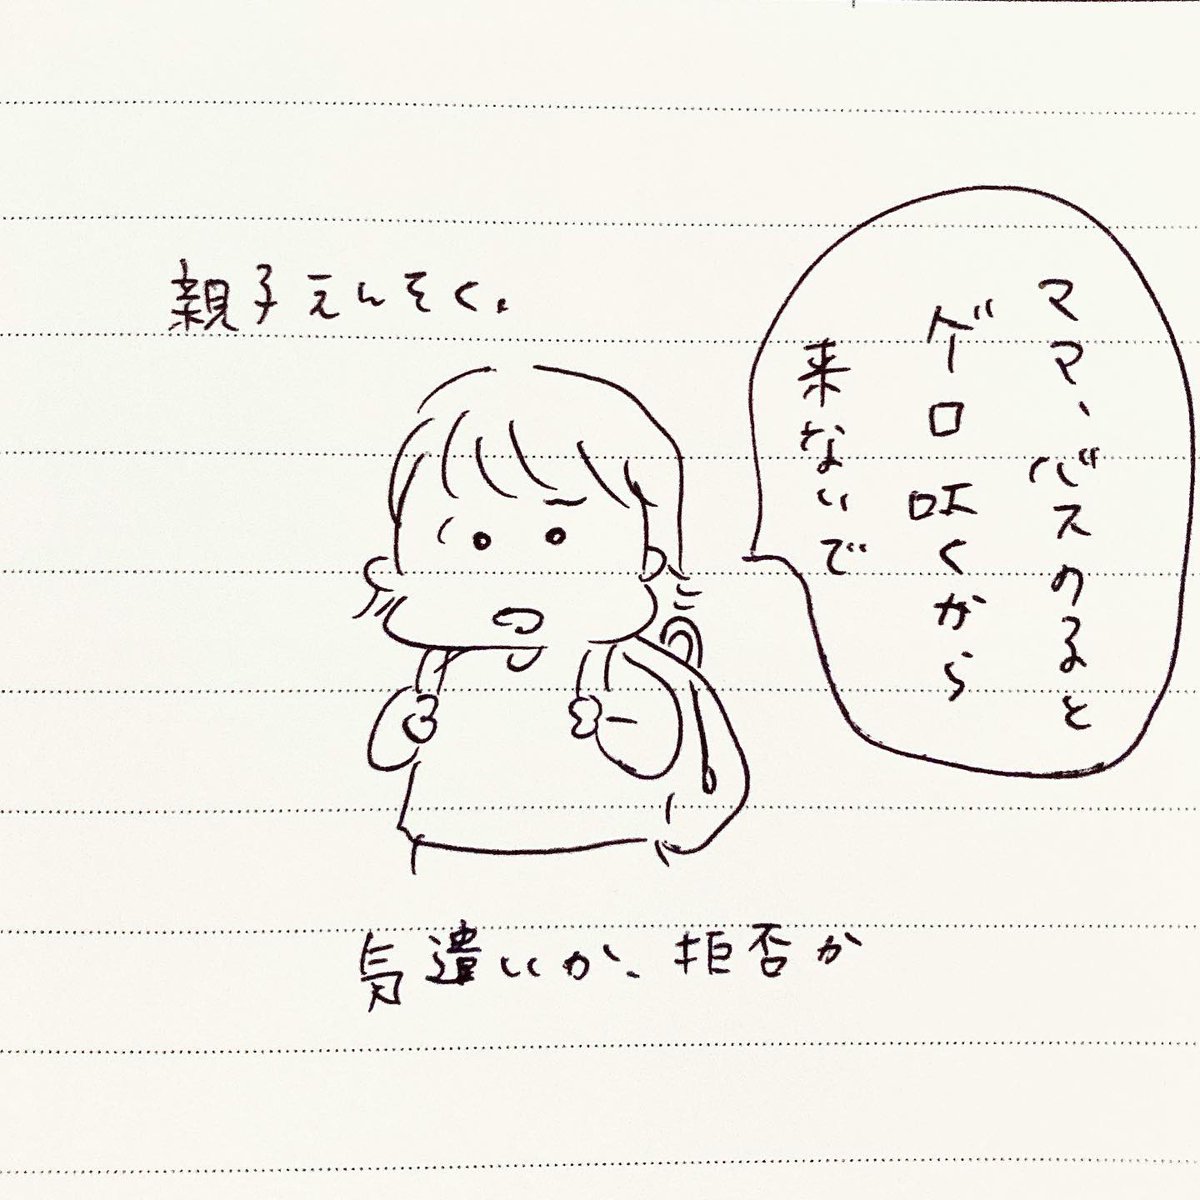 親子えんそく。
ママ、バスのると
ゲロ吐くから
来ないで
気遣いか、拒否か